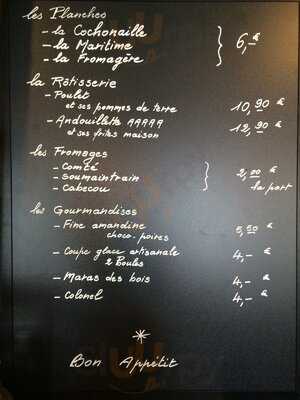 les Planches
- la Cochonaille
- la Maritime 6,- €
- la Fromagère
la Rôtisserie
- Poulet
et ses pommes de terre 10,90 €
- Andouillette AAAAA 12,90 €
et ses frites maison
les Fromages
- Comté
- Soumaintrain 2,00 €
- Cabecou la part
les Gourmandises
- Fine amandine 5,50 €
choco-poires
- Coupe glace artisanale 4,- €
2 Boules
- Maras des bois 4,- €
- Colonel 4,- €
Bon Appétit